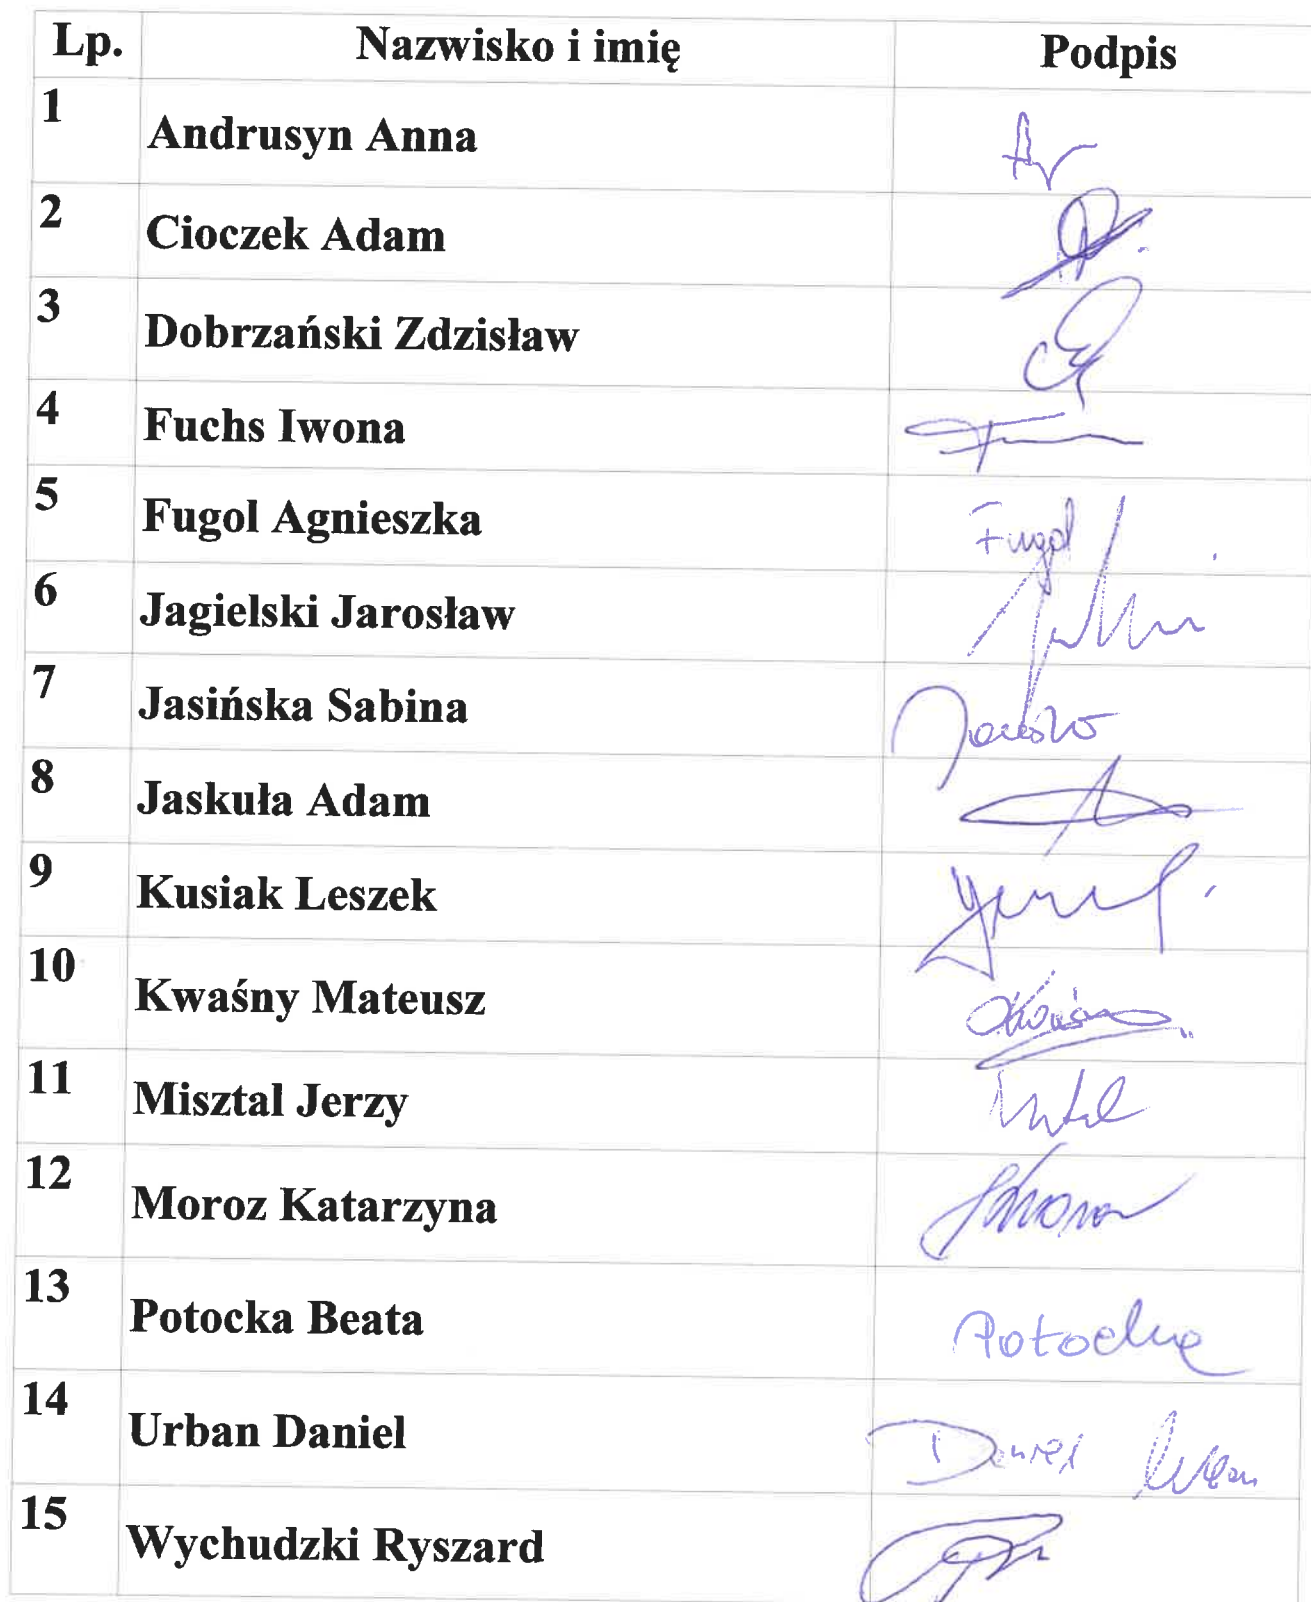 Lp. Nazwisko i imię Podpis
1 Andrusyn Anna
2 Cioczek Adam
3 Dobrzański Zdzisław
4 Fuchs Iwona
5 Fugol Agnieszka Fugol
6 Jagielski Jarosław
7 Jasińska Sabina
8 Jaskuła Adam
9 Kusiak Leszek
10 Kwaśny Mateusz
11 Misztal Jerzy
12 Moroz Katarzyna
13 Potocka Beata Potocka
14 Urban Daniel Daniel Urban
15 Wychudzki Ryszard